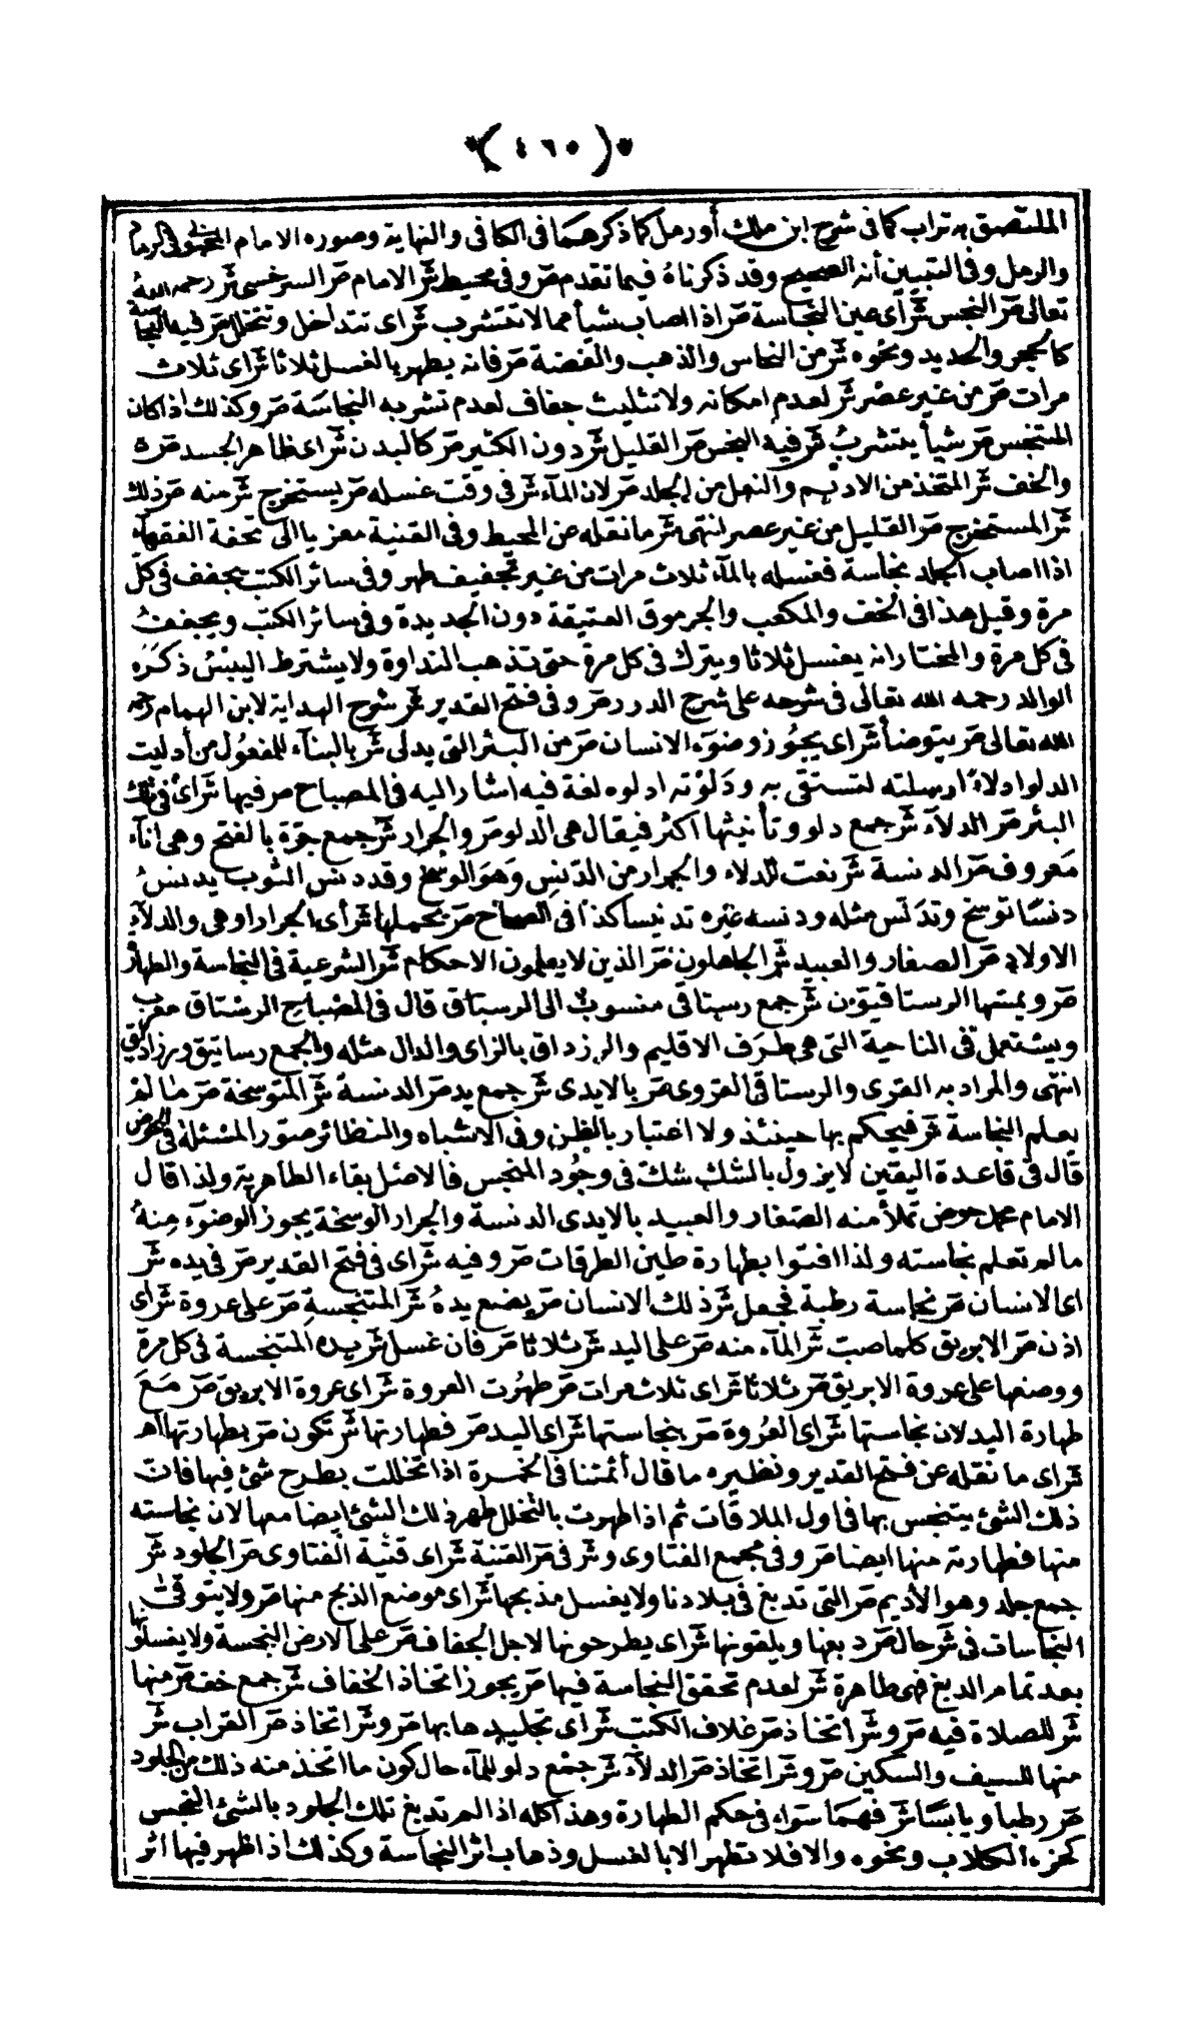 (٤٦٥)
الملتصق به تراب كما في شرح ابن ملك أو رمل كما ذكرهما في الكافي والنهاية وصوره الامام المحبوبي بالرماد
والرمل وفي التبيين أنه الصحيح وقد ذكرناه فيما تقدم ص وفي محيط ش الامام ص السرخسي ش رحمه الله
تعالى ص النجس ش أي عين النجاسة ص اذا اصاب شيأ مما لا تتشرب ش اى تتداخل وتتخلل ص فيه النجاسة
كالحجر والحديد ونحوه ش من النحاس والذهب والفضة ص فانه يطهر بالغسل ثلاثا ش اى ثلاث
مرات ص من غير عصر ش لعدم امكانه ولا تثليث جفاف لعدم تشربه النجاسة ص وكذلك اذا كان
المتنجس ص شيأ يتشرب ش فيه النجس ص القليل ش دون الكثير ص كالبدن ش اى ظاهر الجسد ص
والخف ش المتخذ من الاديم والنعل من الجلد ص لان الماء ش في وقت غسله ص يستخرج ش منه ص ذلك
ش المستخرج ص القليل من غير عصر انتهى ش ما نقله عن المحيط وفي القنية معزيا الى تحفة الفقهاء
اذا اصاب الجلد نجاسة فغسله بالماء ثلاث مرات من غير تجفيف طهر وفي سائر الكتب يجفف في كل
مرة وقيل هذا في الخف والمكعب والجرموق العتيقة دون الجديدة وفي سائر الكتب ويجفف
في كل مرة والمختار انه يغسل ثلاثا ويترك في كل مرة حتى تذهب النداوة ولا يشترط اليبس ذكره
الوالد رحمه الله تعالى في شرحه على شرح الدرر ص وفي فتح القدير ش شرح الهداية لابن الهمام رحمه
الله تعالى ص يتوضأ ش اى يجوز وضوء الانسان ص من البئر التي يدلى ش بالبناء للمفعول من أدليت
الدلو ادلاء ارسلته لتستقى به ودلوته ادلوه لغة فيه اشار اليه في المصباح ص فيها ش اى في تلك
البئر ص الدلاء ش جمع دلو وتأنيثها اكثر فيقال هي الدلو ص والجرار ش جمع جرة بالفتح وهي اناء
معروف ص الدنسة ش نعت للدلاء والجرار من الدنس وهو الوسخ وقد دنس الثوب يدنس
دنسا توسخ وتدنس مثله ودنسه غيره تدنيسا كذا في الصحاح ص يحملها ش أى الجرار اوهى والدلاء
الاولاد ص الصغار والعبيد ش الجاهلون ص الذين لا يعلمون الاحكام ش الشرعية في النجاسة والطهارة
ص ويمسها الرستاقيون ش جمع رستاقي منسوب الى الرستاق قال في المصباح الرستاق معرب
ويستعمل في الناحية التي هي طرف الاقليم والرزداق بالزاى والدال مثله والجمع رساتيق ورزاديق
انتهى والمراد به القرى والرستاقي القروى ص بالايدى ش جمع يد ص الدنسة ش المتوسخة ص ما لم
يعلم النجاسة ش فيحكم بها حينئذ ولا اعتبار بالظن وفي الاشباه والنظائر صور المسئلة في الحوض
قال في قاعدة اليقين لا يزول بالشك شك في وجود المنجس فالاصل بقاء الطاهرية ولذا قال
الامام محمد حوض تملأ منه الصغار والعبيد بالايدى الدنسة والجرار الوسخة يجوز الوضوء منه
ما لم تعلم نجاسته ولذا افتوا بطهارة طين الطرقات ص وفيه ش اى في فتح القدير ص في يده ش
اى الانسان ص نجاسة رطبة فجعل ش ذلك الانسان ص يضع يده ش المتنجسة ص على عروة ش اى
اذن ص الابريق كلما صب ش الماء منه ص على اليد ش ثلاثا ص فان غسل ش يده المتنجسة في كل مرة
ووضعها على عروة الابريق ص ثلاثا ش اى ثلاث مرات ص طهرت العروة ش اى عروة الابريق ص مع
طهارة اليد لان نجاستها ش اى العروة ص بنجاستها ش اى اليد ص فطهارتها ش تكون ص بطهارتها اهـ
ش اى ما نقله عن فتح القدير ونظيره ما قال أئمتنا في الخمرة اذا تخللت بطرح شئ فيها فان
ذلك الشئ يتنجس بها في اول الملاقات ثم اذا طهرت بالتخلل طهر ذلك الشئ ايضا معها لان نجاسته
منها فطهارته منها ايضا ص وفي مجمع الفتاوى و ش في ص القنية ش اى قنية الفتاوى ص الجلود ش
جمع جلد وهو الأديم ص التي تدبغ في بلادنا ولا يغسل مذبحها ش اى موضع الذبح منها ص ولا يتوقى
النجاسات في ش حال ص دبغها ويلقونها ش اى يطرحونها لاجل الجفاف ص على الارض النجسة ولا يغسلونها
بعد تمام الدبغ فهي طاهرة ش لعدم تحقق النجاسة فيها ص يجوز اتخاذ الخفاف ش جمع خف ص منها
ش للصلاة فيه ص و ش اتخاذ ص غلاف الكتب ش اى تجليدها بها ص و ش اتخاذ ص القراب ش
منها للسيف والسكين ص و ش اتخاذ ص الدلاء ش جمع دلو للماء حال كون ما اتخذ منه ذلك من الجلود
ص رطبا ويابسا ش فهما سواء في حكم الطهارة وهذا كله اذا لم تدبغ تلك الجلود بالشئ النجس
كخرء الكلاب ونحوه والا فلا تطهر الا بالغسل وذهاب اثر النجاسة وكذلك اذا ظهر فيها اثر